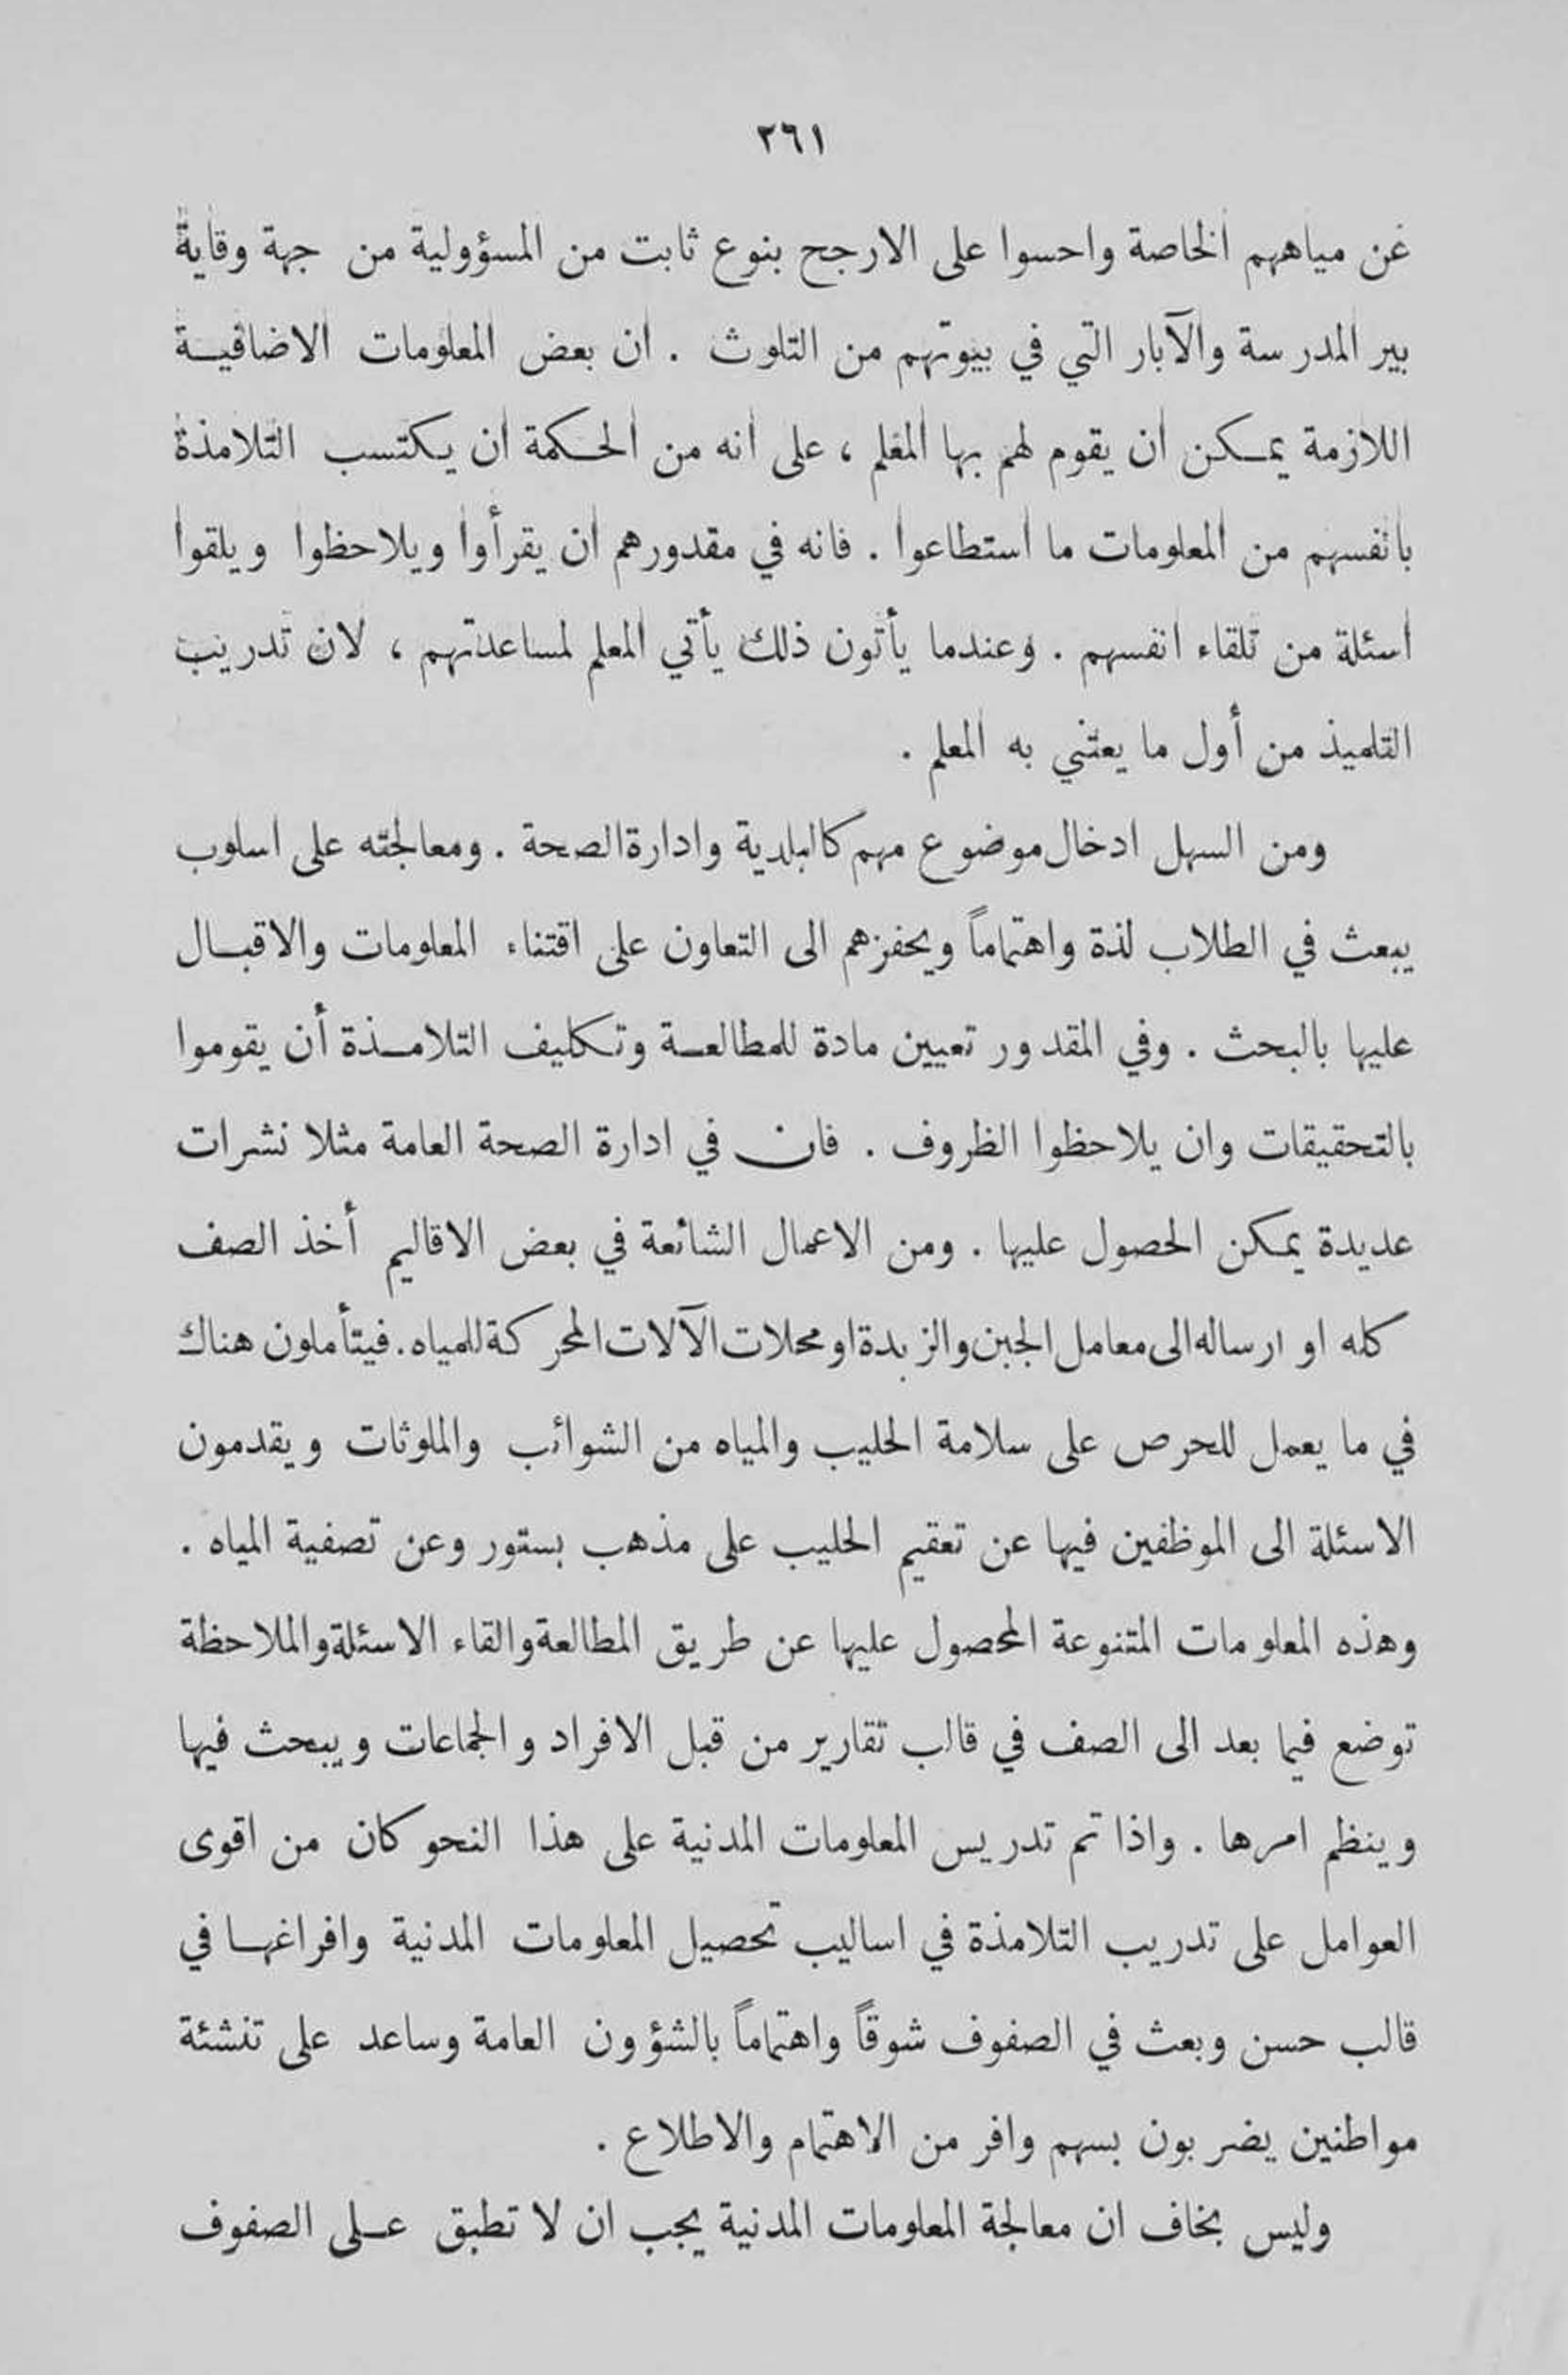 ٢٦١
عن مياههم الخاصة واحسوا على الارجح بنوع ثابت من المسؤولية من جهة وقاية
بير المدرسة والآبار التي في بيوتهم من التلوث . ان بعض المعلومات الاضافية
اللازمة يمكن ان يقوم لهم بها المعلم ، على انه من الحكمة ان يكتسب التلامذة
بانفسهم من المعلومات ما استطاعوا . فانه في مقدورهم ان يقرأوا ويلاحظوا ويلقوا
اسئلة من تلقاء انفسهم . وعندما يأتون ذلك يأتي المعلم لمساعدتهم ، لان تدريب
التلميذ من أول ما يعتني به المعلم .
ومن السهل ادخال موضوع مهم كالبلدية وادارة الصحة . ومعالجته على اسلوب
يبعث في الطلاب لذة واهتماماً ويحفزهم الى التعاون على اقتناء المعلومات والاقبال
عليها بالبحث . وفي المقدور تعيين مادة للمطالعة وتكليف التلامذة أن يقوموا
بالتحقيقات وان يلاحظوا الظروف . فان في ادارة الصحة العامة مثلا نشرات
عديدة يمكن الحصول عليها . ومن الاعمال الشائعة في بعض الاقاليم أخذ الصف
كله او ارساله الى معامل الجبن والزبدة او محلات الآلات المحركة للمياه . فيتأملون هناك
في ما يعمل للحرص على سلامة الحليب والمياه من الشوائب والملوثات ويقدمون
الاسئلة الى الموظفين فيها عن تعقيم الحليب على مذهب بستور وعن تصفية المياه .
وهذه المعلومات المتنوعة المحصول عليها عن طريق المطالعة والقاء الاسئلة والملاحظة
توضع فيما بعد الى الصف في قالب تقارير من قبل الافراد والجماعات ويبحث فيها
وينظم امرها . واذا تم تدريس المعلومات المدنية على هذا النحو كان من اقوى
العوامل على تدريب التلامذة في اساليب تحصيل المعلومات المدنية وافراغها في
قالب حسن وبعث في الصفوف شوقاً واهتماماً بالشؤون العامة وساعد على تنشئة
مواطنين يضربون بسهم وافر من الاهتمام والاطلاع .
وليس بخاف ان معالجة المعلومات المدنية يجب ان لا تطبق على الصفوف